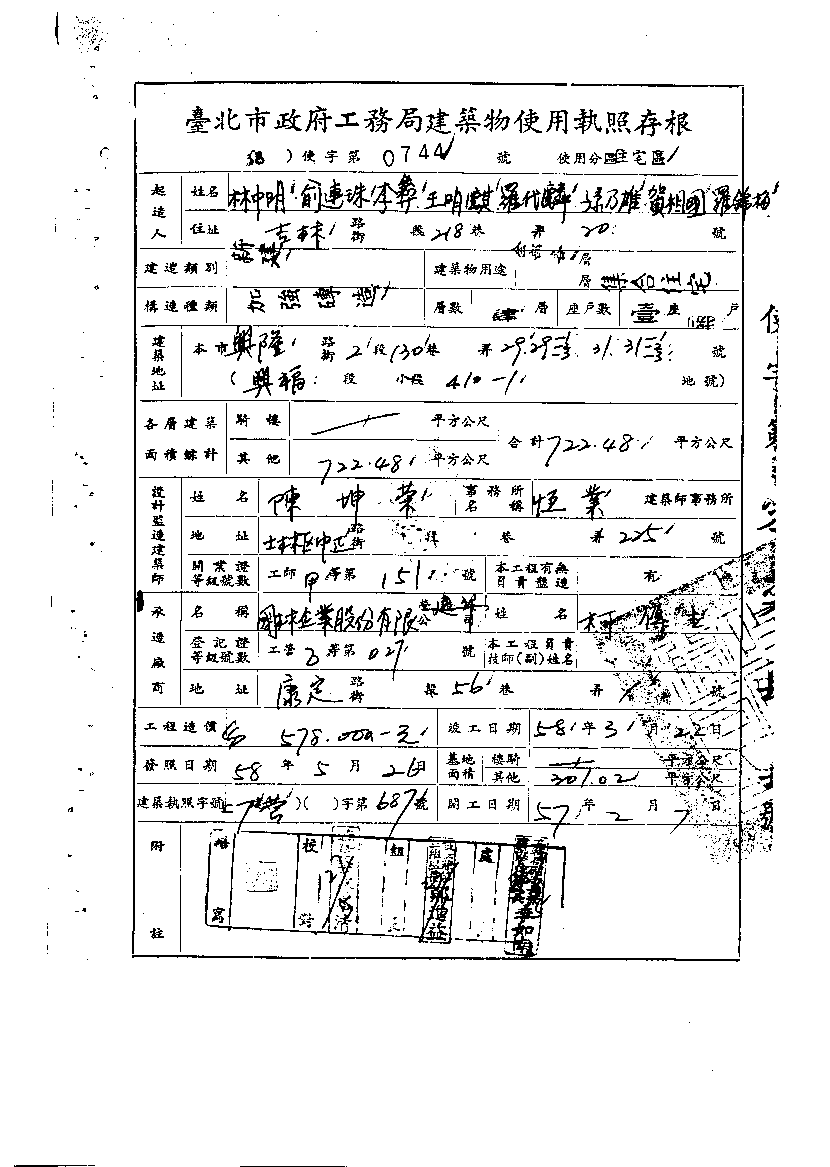 臺北市政府工務局建築物使用執照存根
58 ) 使字第 0744 號 使用分區 住宅區
起造人 姓名 林中明 俞連珠 李彝 王明麒 羅代麟 孫乃雄 賀相國
住址 吉林 路街 段 218 巷 弄 20 號
建造類別 新 建築物用途 層 層 集合住宅
構造種類 加強磚造 層數 肆 層 座戶數 壹 座 戶
建築地址 本市 興隆 路街 2 段 130 巷 弄 29. 29 31. 31 號
( 興福 段 小段 410-1 地號)
各層建築面積總計 騎樓 平方公尺 合計 722.48 平方公尺
其他 722.48 平方公尺
設計監造建築師 姓名 陳坤榮 事務所名稱 恒業 建築師事務所
地址 士林區中正 路街 段 巷 弄 225 號
開業證等級號數 工師 甲 等第 151 號 本工程有無負責監造 有 無
承造廠商 名稱 企業股份有限 公司 姓名 柯
登記證等級號數 工營 乙 等第 027 號 本工程負責技師(副)姓名
地址 康定 路街 段 56 巷 弄 號
工程造價 578.000-元 竣工日期 58 年 3 月 22 日
發照日期 58 年 5 月 26 日 基地面積 騎樓 平方公尺
其他 301.02 平方公尺
建築執照字號 營 )( )字第 687 號 開工日期 57 年 2 月 7 日
附註
繕寫 校對 組 處